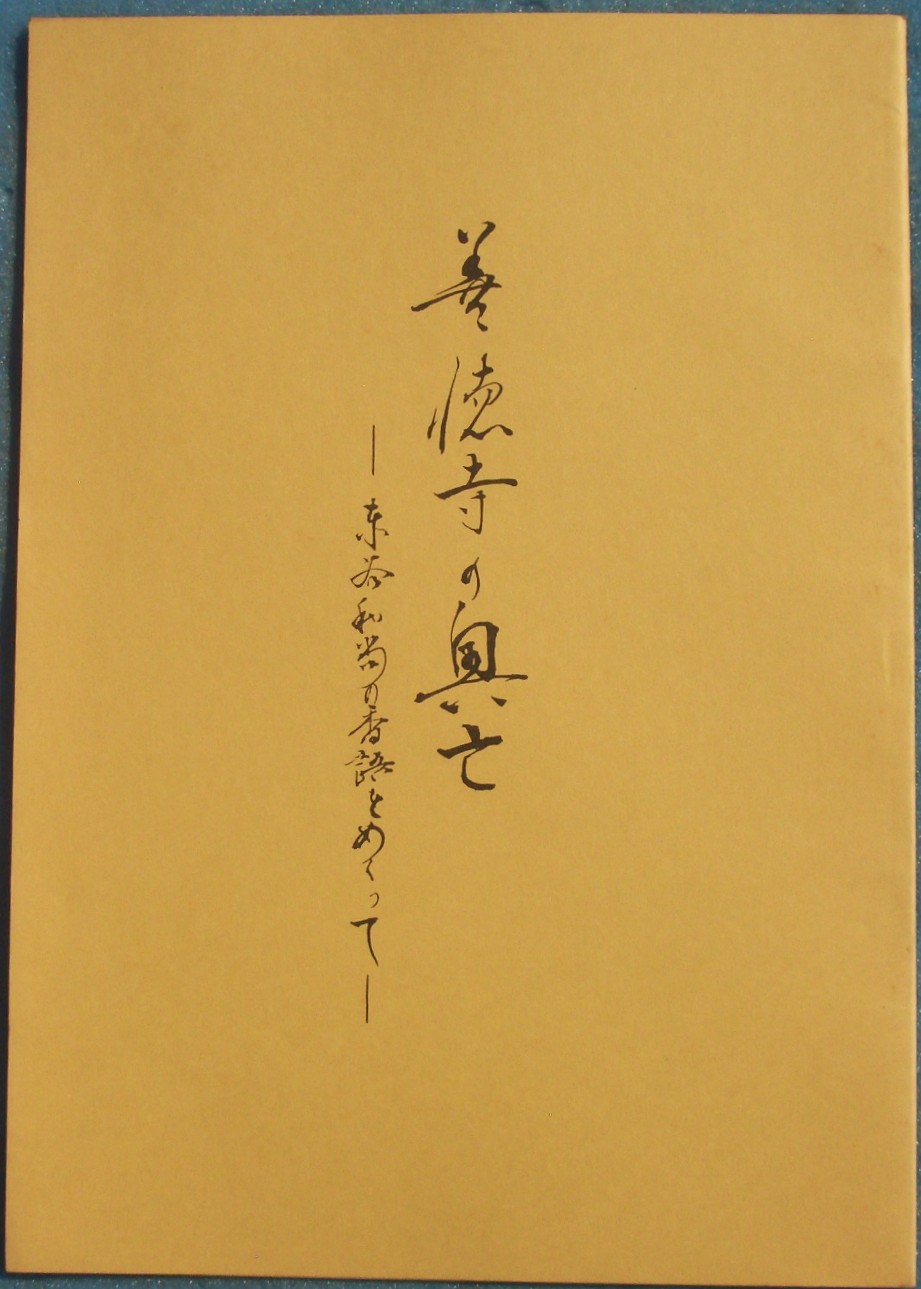 善徳寺の興亡
―東谷和尚の香語をめぐって―